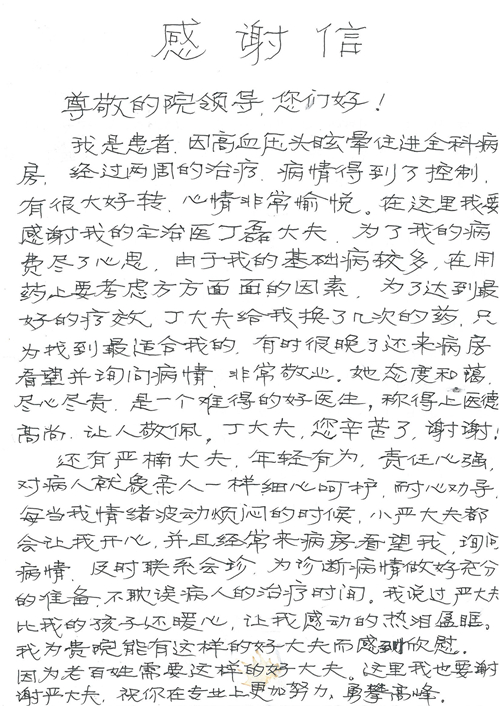 感谢信
尊敬的院领导,您们好!
我是患者,因高血压头眩晕住进全科病
房,经过两周的治疗,病情得到了控制,
有很大好转,心情非常愉悦。在这里我要
感谢我的主治医丁磊大夫,为了我的病
费尽了心思,由于我的基础病较多,在用
药上要考虑方方面面的因素,为了达到最
好的疗效,丁大夫给我换了几次的药,只
为找到最适合我的,有时很晚了还来病房
看望并询问病情,非常敬业。她态度和蔼,
尽心尽责,是一个难得的好医生,称得上医德
高尚,让人敬佩。丁大夫,您辛苦了,谢谢!
还有严楠大夫,年轻有为,责任心强,
对病人就象亲人一样细心呵护,耐心劝导,
每当我情绪波动烦闷的时候,小严大夫都
会让我开心,并且经常来病房看望我,询问
病情,及时联系会诊,为诊断病情做好充分
的准备,不耽误病人的治疗时间。我说过严大夫
比我的孩子还暖心,让我感动的热泪盈眶。
我为贵院能有这样的好大夫而感到欣慰。
因为老百姓需要这样的好大夫。这里我也要谢
谢严大夫,祝你在专业上更加努力,勇攀高峰。